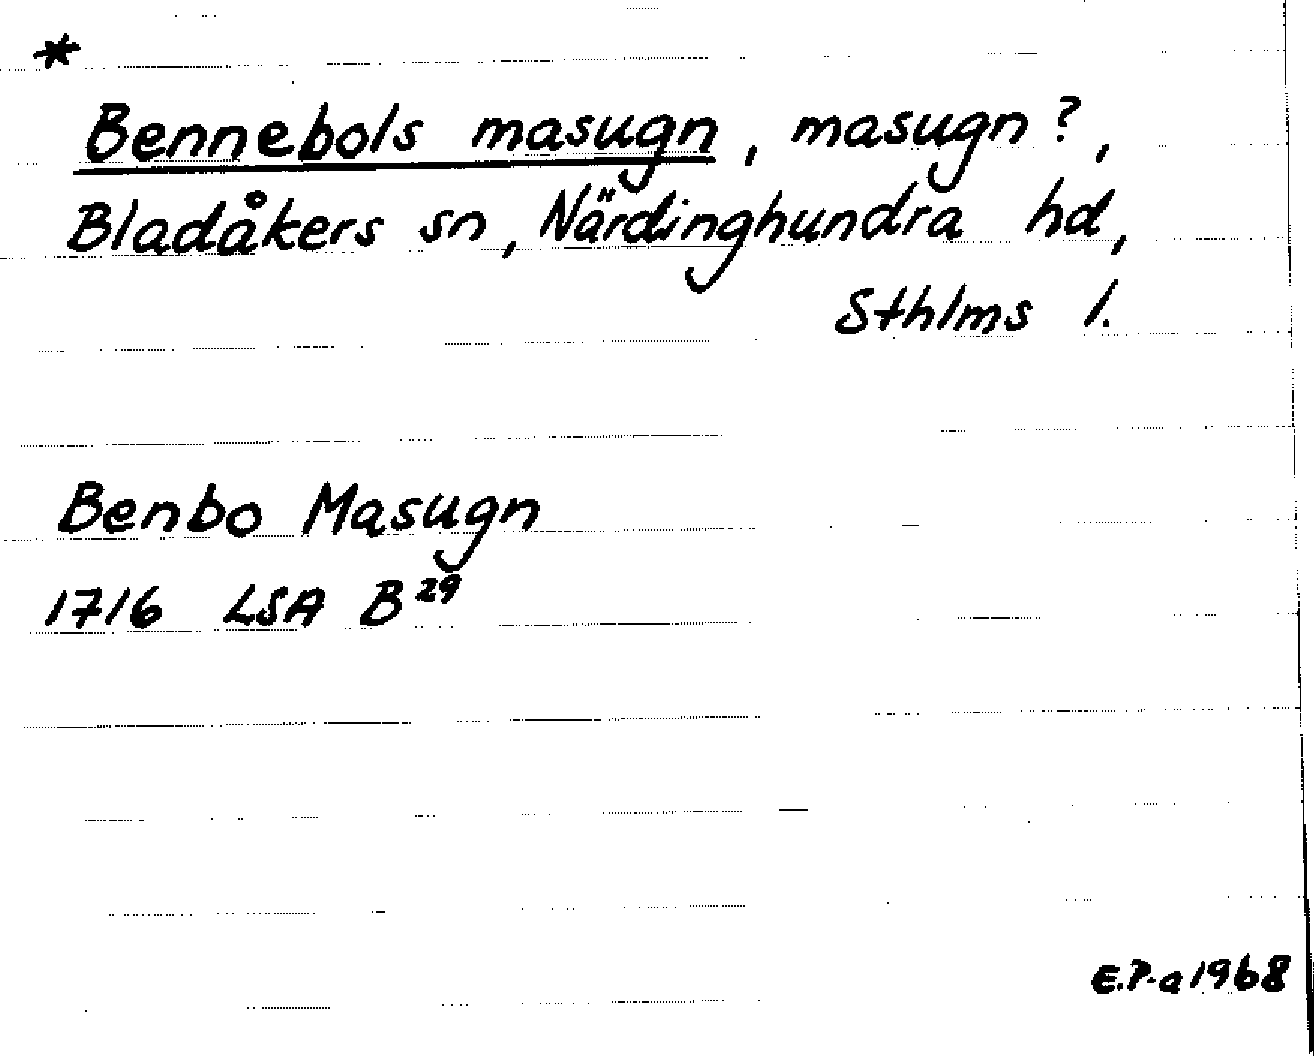 *
Bennebols masugn, masugn?,
Bladåkers sn, Närdinghundra hd,
Sthlms l.
Benbo Masugn
1716 LSA B²⁹
E.P-a 1968